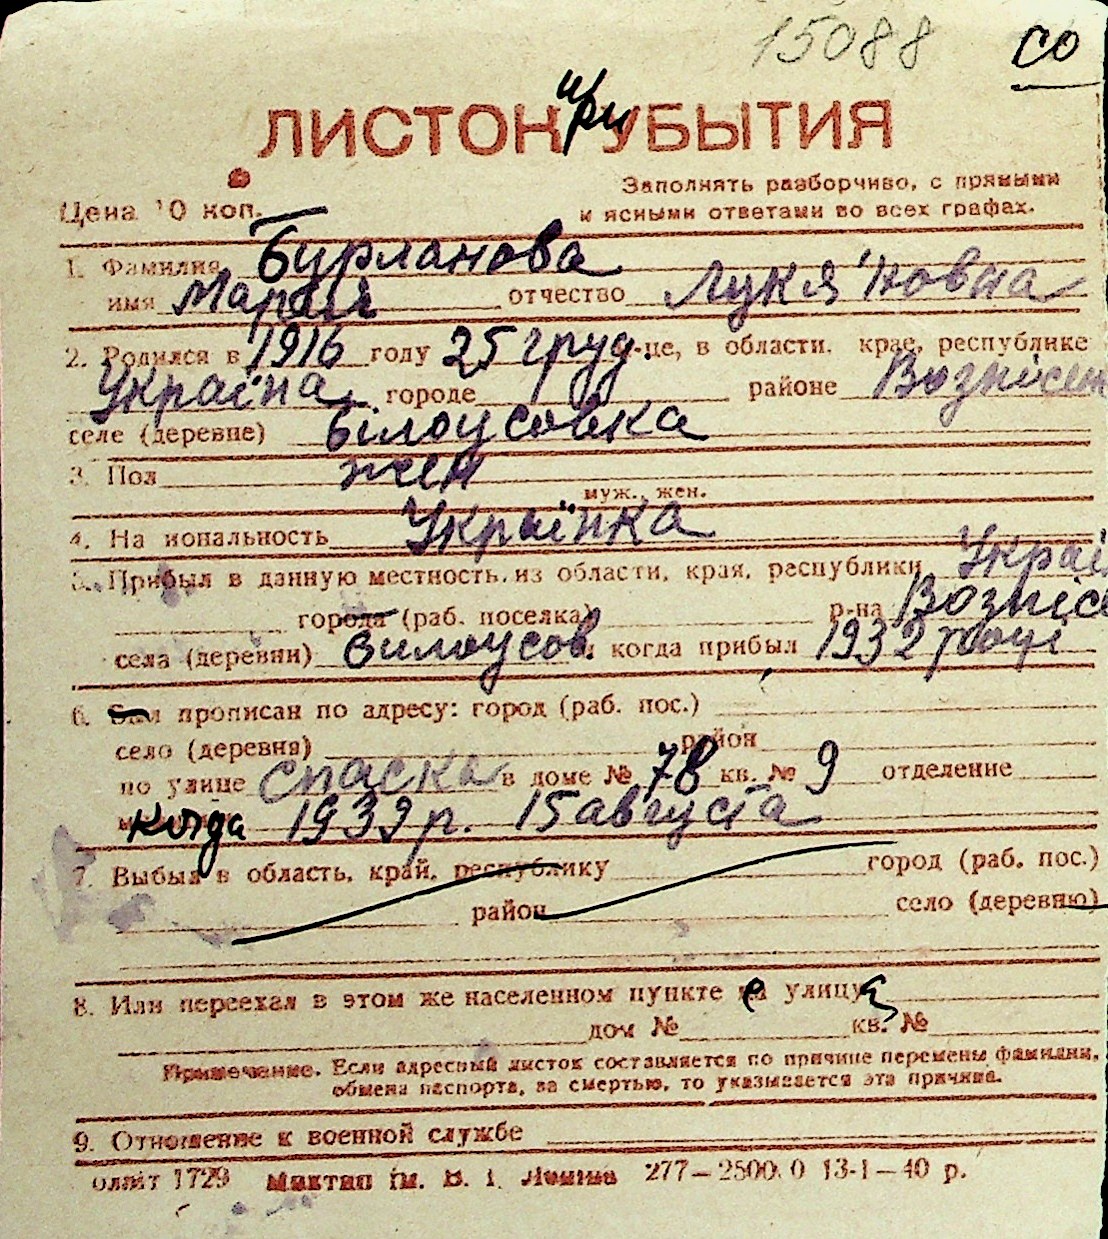 15088 СО
ЛИСТОК при УБЫТИЯ
Заполнять разборчиво, с прямыми
Цена 10 коп. и ясными ответами во всех графах.
1. Фамилия Бурланова
имя Мария отчество Лукя'новна
2. Родился в 1916 году 25 груд. м-це, в области, крае, республике
Україна городе районе Вознісен
селе (деревне) Білоусовка
3. Пол жен
муж., жен.
4. Национальность Українка
5. Прибыл в данную местность из области, края, республики Украї
города (раб. поселка) р-на Вознісе
села (деревни) Билоусов. и когда прибыл 1932 році
6. Был прописан по адресу: город (раб. пос.)
село (деревня) район
по улице Спаска в доме № 78 кв. № 9 отделение
когда 1939 р. 15 августа
7. Выбыл в область, край, республику город (раб. пос.)
район село (деревню)
8. Или переехал в этом же населенном пункте с улицы
дом № кв. №
Примечание. Если адресный листок составляется по причине перемены фамилии,
обмена паспорта, за смертью, то указывается эта причина.
9. Отношение к военной службе
1729 им. В. І. Леніна 277—2500.0 13-1—40 р.